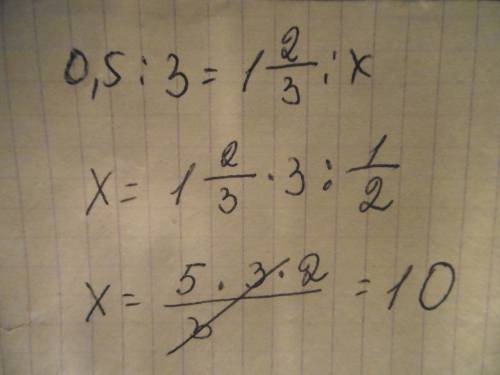 0,5 : 3 = 1 2/3 : x
x = 1 2/3 · 3 : 1/2
x = 5 · 3 · 2 / 3 = 10